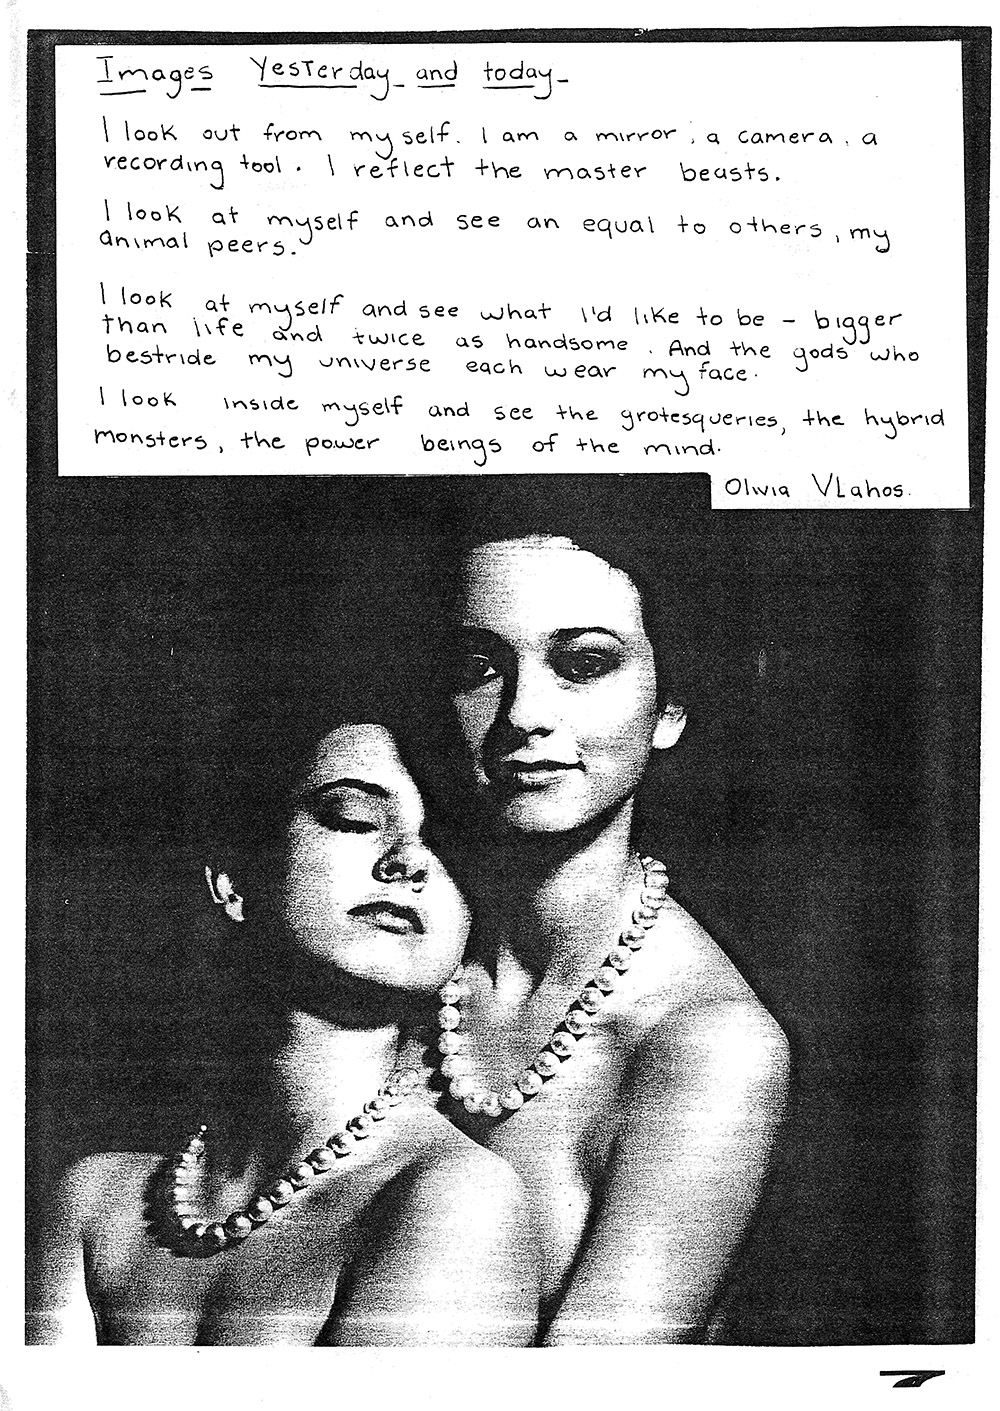 Images Yesterday and today
I look out from myself. I am a mirror, a camera, a
recording tool. I reflect the master beasts.
I look at myself and see an equal to others, my
animal peers.
I look at myself and see what I'd like to be – bigger
than life and twice as handsome. And the gods who
bestride my universe each wear my face.
I look inside myself and see the grotesqueries, the hybrid
monsters, the power beings of the mind.
Olivia Vlahos.
7